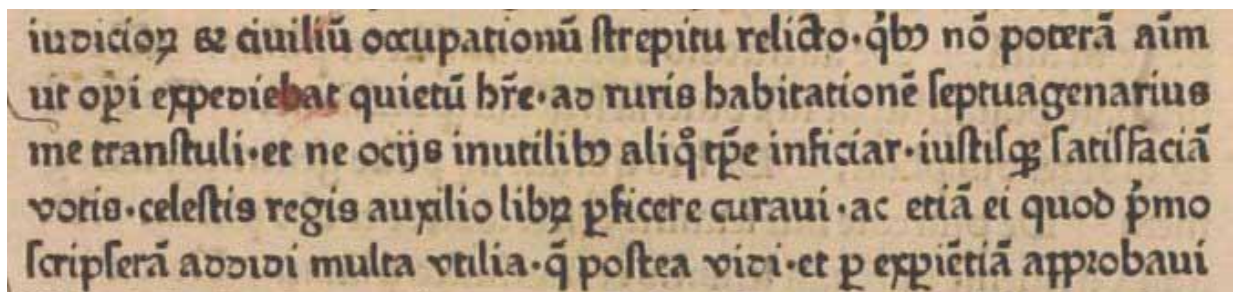 iudicioꝝ & ciuiliū occupationū ſtrepitu relicto·qͥbꝫ nō poterā aīm
ut oꝑi expediebat quietū hr̄e·ad ruris habitationē ſeptuagenarius
me tranſtuli·et ne ocijs inutilibꝫ aliqͦ tꝑe inficiar·iuſtiſqꝫ ſatiſfaciā
votis·celeſtis regis auxilio libꝝ ꝑficere curaui·ac etiā ei quod pͥmo
ſcripſerā addidi multa vtilia·q̄ poſtea vidi·et ꝑ exꝑiētiā approbaui